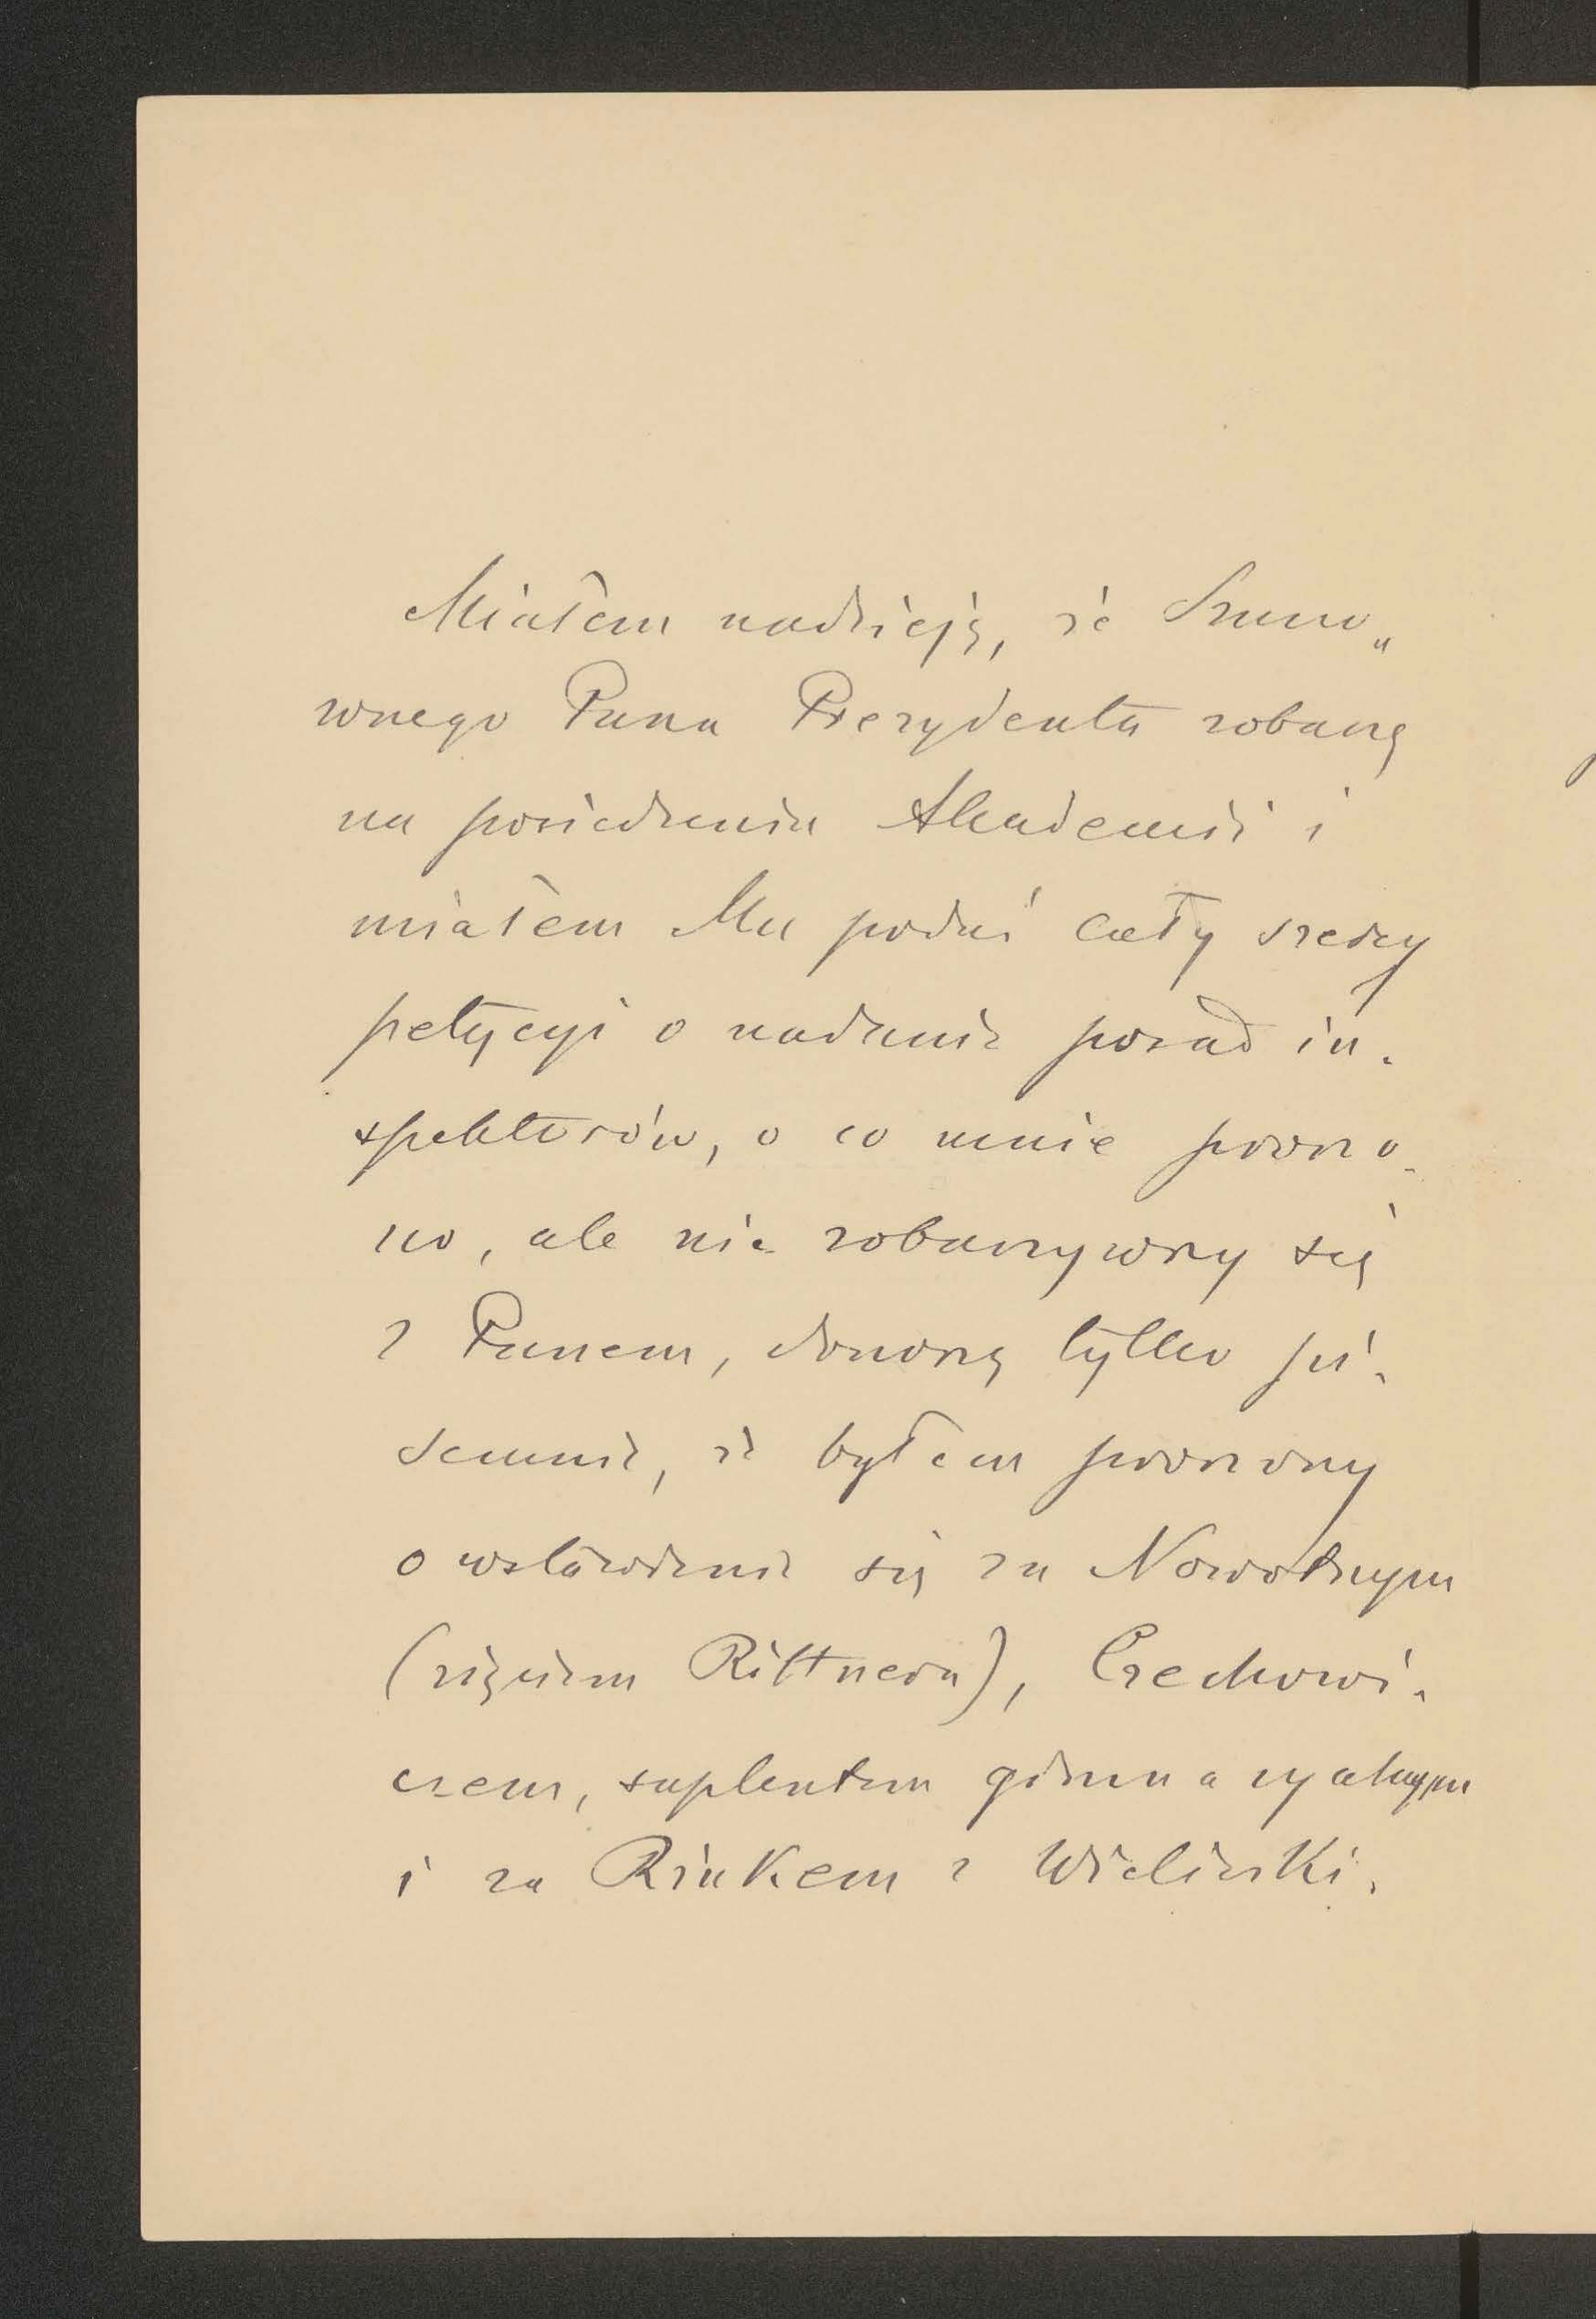 Miałem nadzieję, że Szano„
wnego Pana Prezydenta zobaczę
na posiedzeniu Akademii i
miałem Mu podać cały szereg
petycyi o nadanie posad in-
spektorów, o co mnie proszo-
no, ale nie zobaczywszy się
z Panem, donoszę tylko pi-
semnie, że byłem proszony
o wstawienie się za Nowotnym
(zięciem Rittnera), Czechowi-
czem, suplentem gimnazyalnym
i za Rinkem z Wieliczki.